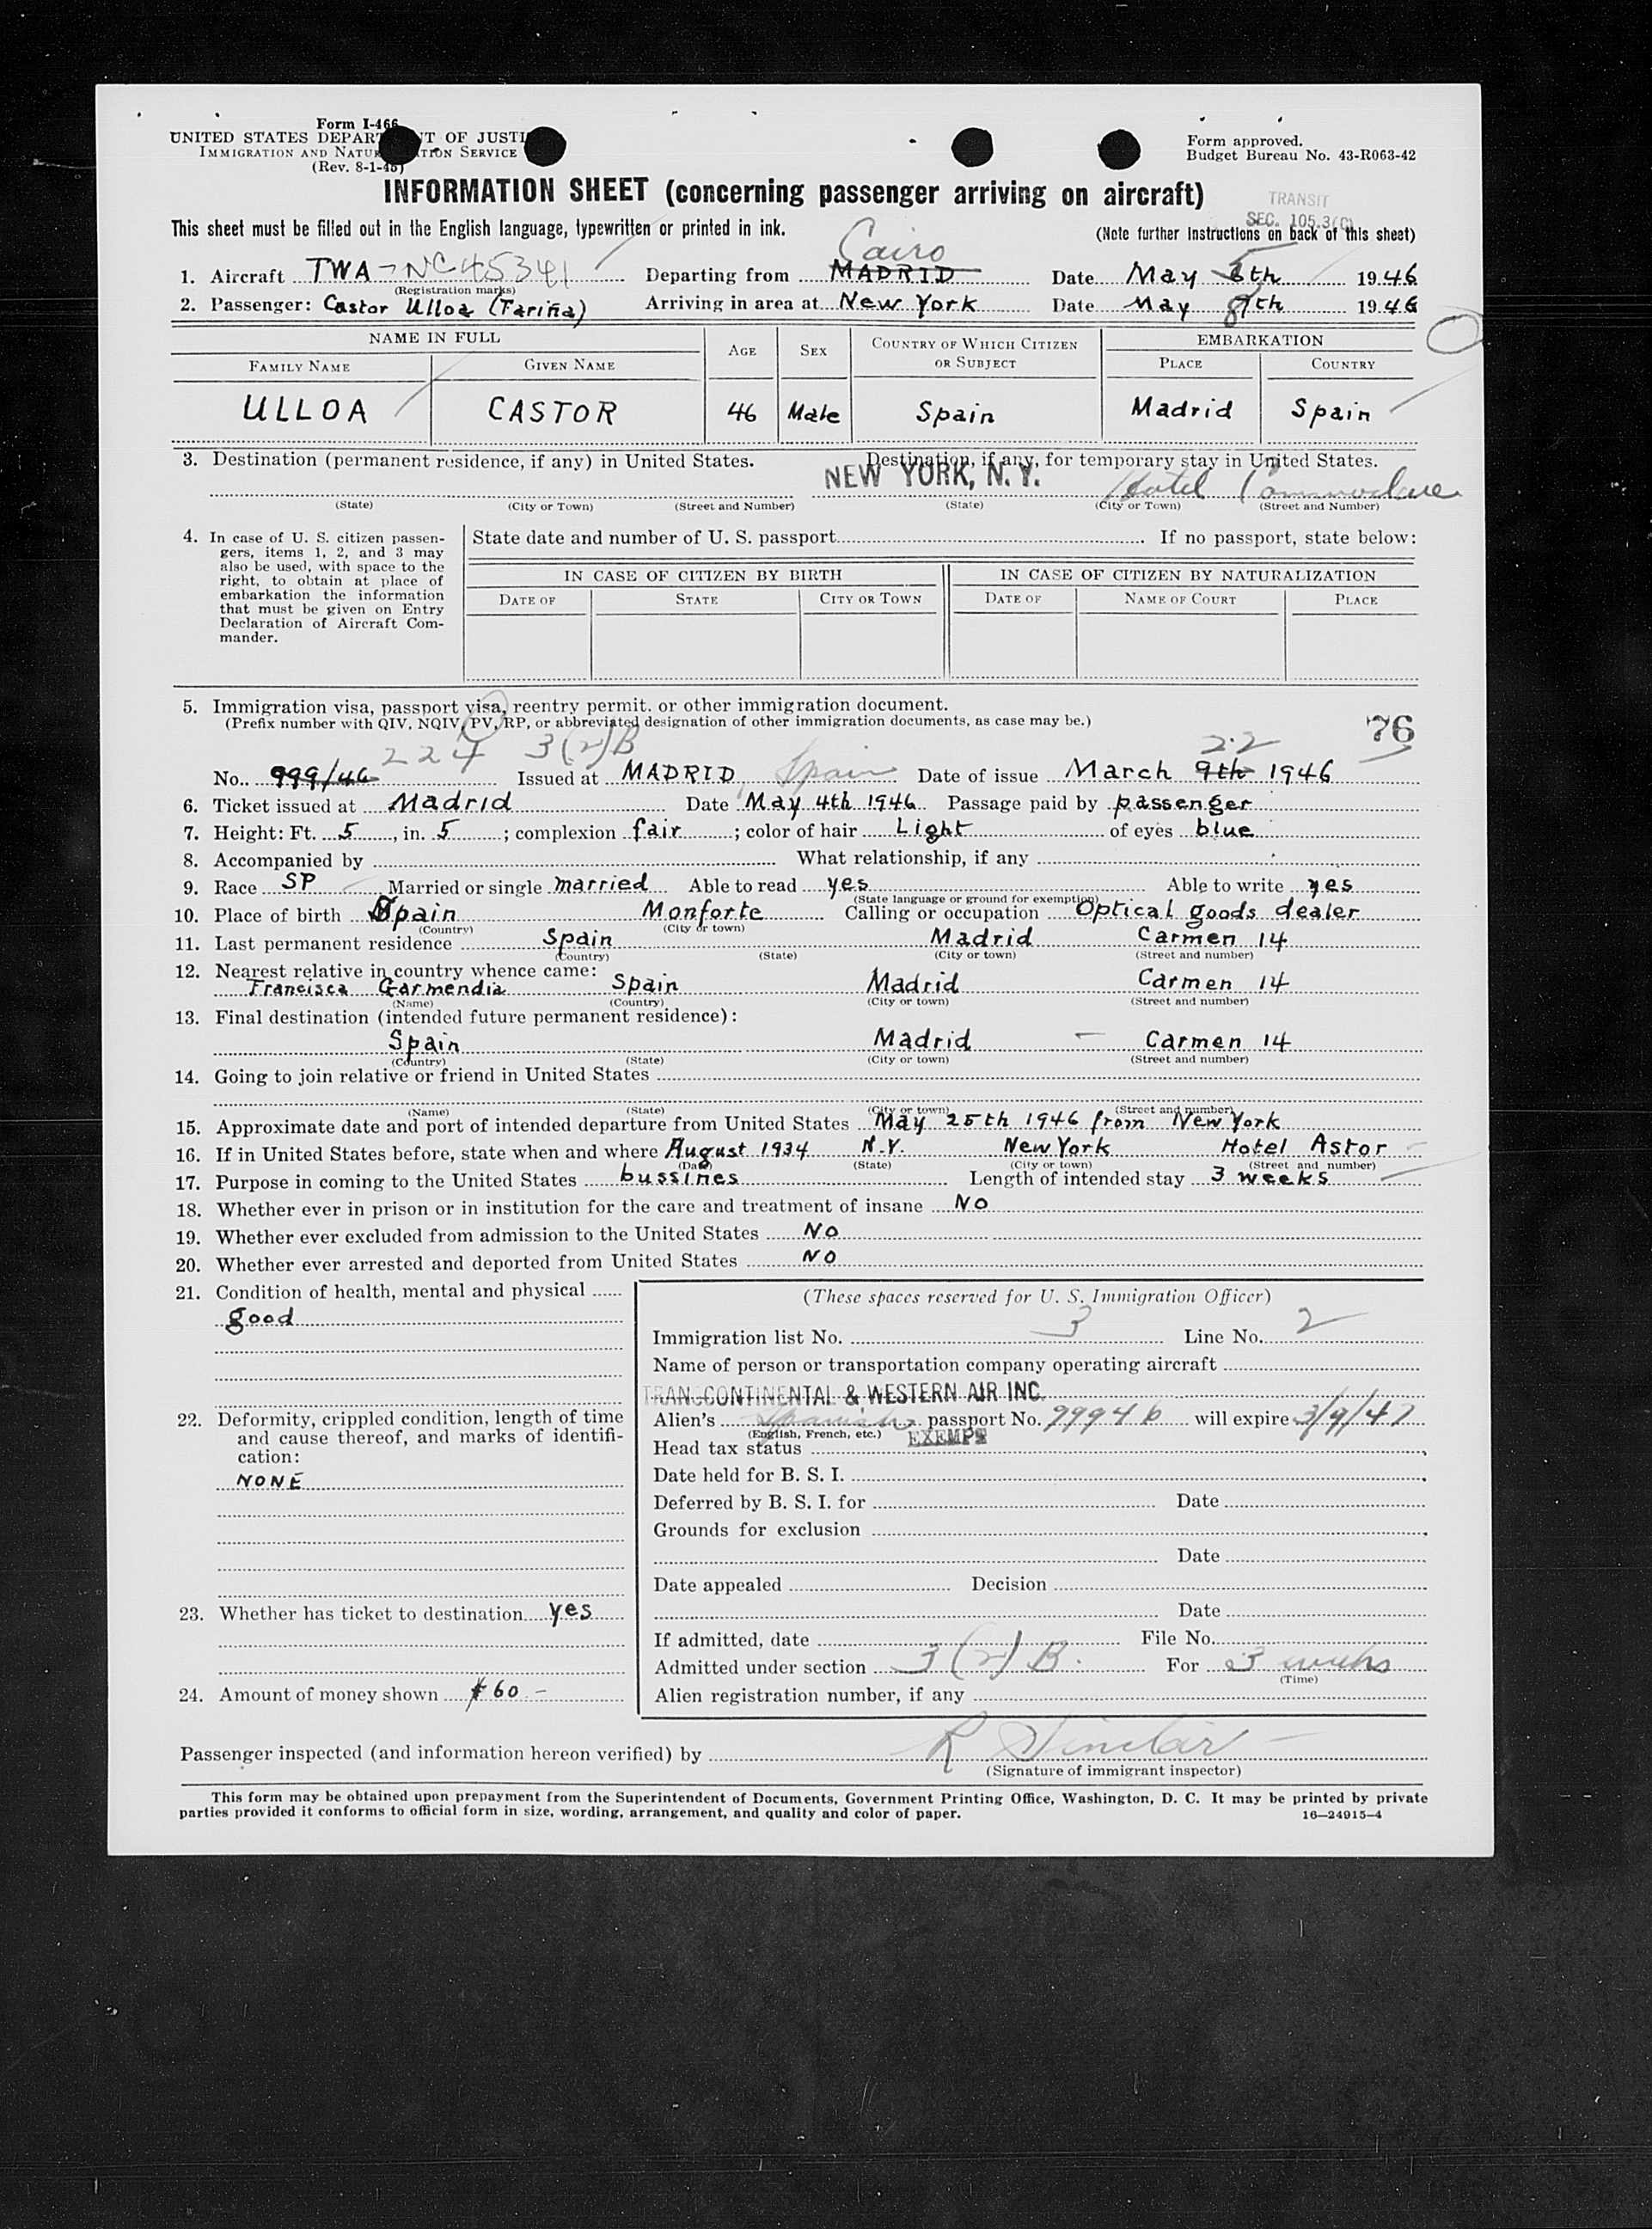 Form I-466
UNITED STATES DEPARTMENT OF JUSTICE
IMMIGRATION AND NATURALIZATION SERVICE
(Rev. 8-1-45)
Form approved.
Budget Bureau No. 43-R063-42
INFORMATION SHEET (concerning passenger arriving on aircraft)
TRANSIT
SEC. 105.3(C)
This sheet must be filled out in the English language, typewritten or printed in ink.
(Note further instructions on back of this sheet)
Cairo
1. Aircraft TWA - NC 45341 Departing from MADRID Date May 6th 1946
(Registration marks)
2. Passenger: Castor Ulloa (Fariña) Arriving in area at New York Date May 8th 1946
NAME IN FULL AGE SEX COUNTRY OF WHICH CITIZEN OR SUBJECT EMBARKATION
FAMILY NAME GIVEN NAME PLACE COUNTRY
ULLOA CASTOR 46 Male Spain Madrid Spain
3. Destination (permanent residence, if any) in United States. Destination, if any, for temporary stay in United States.
NEW YORK, N. Y. Hotel Commodore
(State) (City or Town) (Street and Number) (State) (City or Town) (Street and Number)
4. In case of U. S. citizen passen-
gers, items 1, 2, and 3 may
also be used, with space to the
right, to obtain at place of
embarkation the information
that must be given on Entry
Declaration of Aircraft Com-
mander.
State date and number of U. S. passport If no passport, state below:
IN CASE OF CITIZEN BY BIRTH IN CASE OF CITIZEN BY NATURALIZATION
DATE OF STATE CITY OR TOWN DATE OF NAME OF COURT PLACE
5. Immigration visa, passport visa, reentry permit, or other immigration document.
(Prefix number with QIV, NQIV, PV, RP, or abbreviated designation of other immigration documents, as case may be.)
76
224 3(2)B 22
No. 999/46 Issued at MADRID, Spain Date of issue March 9th 1946
6. Ticket issued at Madrid Date May 4th 1946 Passage paid by passenger
7. Height: Ft. 5, in. 5; complexion fair; color of hair Light of eyes blue
8. Accompanied by What relationship, if any
9. Race SP Married or single married Able to read yes Able to write yes
(State language or ground for exemption)
10. Place of birth Spain Monforte Calling or occupation Optical goods dealer
(Country) (City or town)
11. Last permanent residence Spain Madrid Carmen 14
(Country) (State) (City or town) (Street and number)
12. Nearest relative in country whence came:
Francisca Garmendia Spain Madrid Carmen 14
(Name) (Country) (City or town) (Street and number)
13. Final destination (intended future permanent residence):
Spain Madrid - Carmen 14
(Country) (State) (City or town) (Street and number)
14. Going to join relative or friend in United States
(Name) (State) (City or town) (Street and number)
15. Approximate date and port of intended departure from United States May 25th 1946 from New York
16. If in United States before, state when and where August 1934 N.Y. New York Hotel Astor
(Date) (State) (City or town) (Street and number)
17. Purpose in coming to the United States bussines Length of intended stay 3 weeks
18. Whether ever in prison or in institution for the care and treatment of insane NO
19. Whether ever excluded from admission to the United States NO
20. Whether ever arrested and deported from United States NO
21. Condition of health, mental and physical
good
22. Deformity, crippled condition, length of time
and cause thereof, and marks of identifi-
cation:
NONE
23. Whether has ticket to destination yes
24. Amount of money shown $60.-
(These spaces reserved for U. S. Immigration Officer)
Immigration list No. 3 Line No. 2
Name of person or transportation company operating aircraft
TRANSCONTINENTAL & WESTERN AIR INC.
Alien's Spanish passport No. 99946 will expire 3/9/47
(English, French, etc.) EXEMPT
Head tax status
Date held for B. S. I.
Deferred by B. S. I. for Date
Grounds for exclusion
Date
Date appealed Decision
Date
If admitted, date File No.
Admitted under section 3(2)B. For 3 weeks
(Time)
Alien registration number, if any
Passenger inspected (and information hereon verified) by R Sinclair
(Signature of immigrant inspector)
This form may be obtained upon prepayment from the Superintendent of Documents, Government Printing Office, Washington, D. C. It may be printed by private
parties provided it conforms to official form in size, wording, arrangement, and quality and color of paper. 16—24915-4